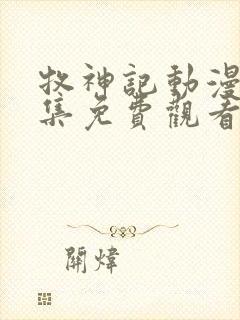 牧神記動漫
集免費觀看
關煒